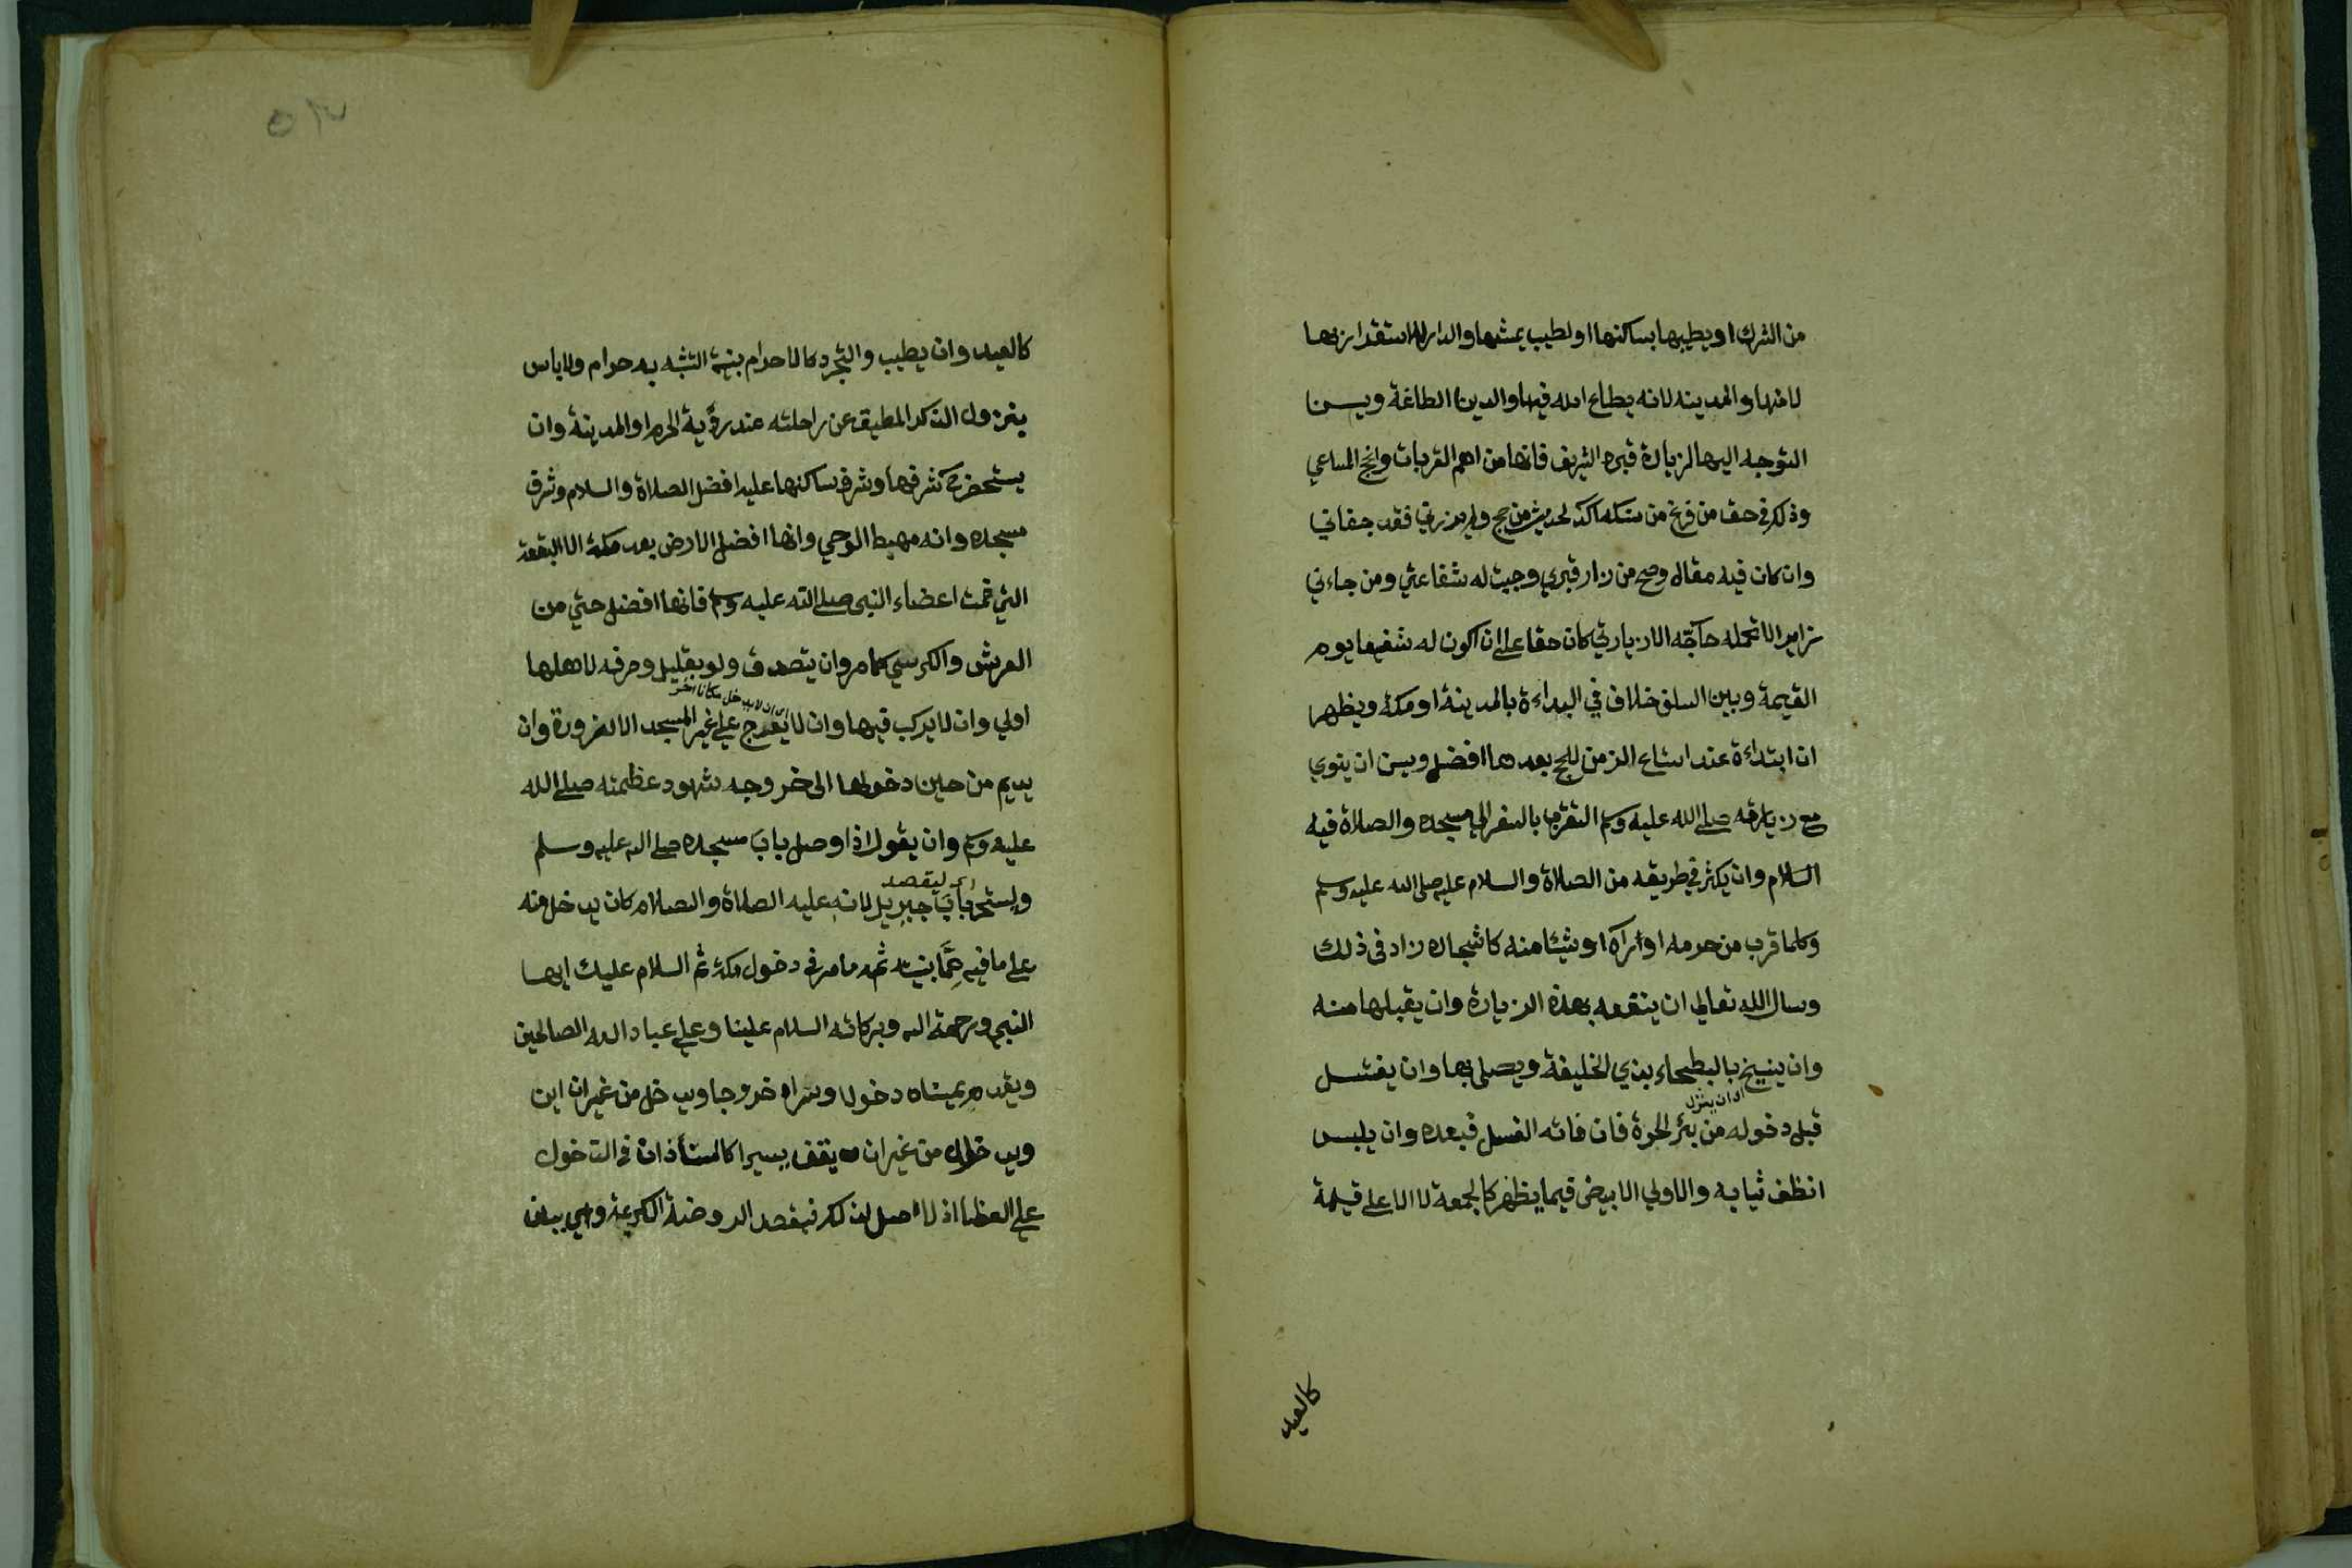 من الشرك او يطيبها بساكنها او لطيب عيشها والدار للاستقرار بها
لامنها والمدينه لانه يطاع الله فيها والدين الطاعة ويسن
التوجه اليها لزيارة قبره الشريف فانها من اهم القربات وانجح المساعي
وذلك في حق من فرغ من نسكه اكد لحديث من حج ولم يزرني فقد جفاني
وان كان فيه مقال وصح من زار قبري وجبت له شفاعتي ومن جاءني
زايرا لا تحمله حاجة الا زيارتي كان حقا على ان اكون له شفيعا يوم
القيمة وبين السلف خلاف في البداءة بالمدينة او مكة ويظهر
ان ابتداءة عند اتساع الزمن للحج بعدها افضل ويسن ان ينوي
مع زيارته صلى الله عليه وسلم التقرب بالسفر الى مسجده والصلاة فيه
السلام وان يكثر في طريقه من الصلاة والسلام عليه صلى الله عليه وسلم
وكلما قرب من حرمه او اراه او شيئا منه كاشجاره زاد في ذلك
وسال الله تعالى ان ينفعه بهذه الزيارة وان يقبلها منه
وان ينيخ بالبطحاء بذي الخليفة ويصلي بها وان يغتسل
قبل دخوله من بئر الحرة فان فاته الغسل فبعده وان يلبس
انظف ثيابه والاولى الابيض فيما يظهر كالجمعة لا الاعلى قيمة
كالعيد
كالعيد وان يطيب والتجرد كالاحرام بنية التشبه به حرام ولا باس
بنزول الذكر المطيق عن راحلته عند رؤية الحرم او المدينة وان
يستحضر شرفها وشرف ساكنها عليه افضل الصلاة والسلام وشرف
مسجده وانه مهبط الوحي وانها افضل الارض بعد مكة الا البقعة
التي ضمت اعضاء النبي صلى الله عليه وسلم فانها افضل حتي من
العرش والكرسي كما مر وان يتصدق ولو بقليل وصرفه لاهلها
اي ان لا يدخل مكانا اخر
اولي وان لا يركب فيها وان لا يعرج على غير المسجد الا لضرورة وان
يديم من حين دخولها الى خروجه شهود عظمته صلى الله
عليه وسلم وان يقول اذا وصل باب مسجده صلى الله عليه وسلم
اي ليقصد
وليتحر باب جبريل لانه عليه الصلاة والصلام كان يدخل منه
على ما فيه مما بينته ثمه ما مر في دخول مكة ثم السلام عليك ايها
النبي ورحمة الله وبركاته السلام علينا وعلى عباد الله الصالحين
ويقدم يمناه دخولا ويسراه خروجا ويدخل من غير ان
من غير ان يقف يسيرا كالمستأذن في الدخول
على العظما اذ لا اصل لذلك فيقصد الروضة الكريمة وهي بين